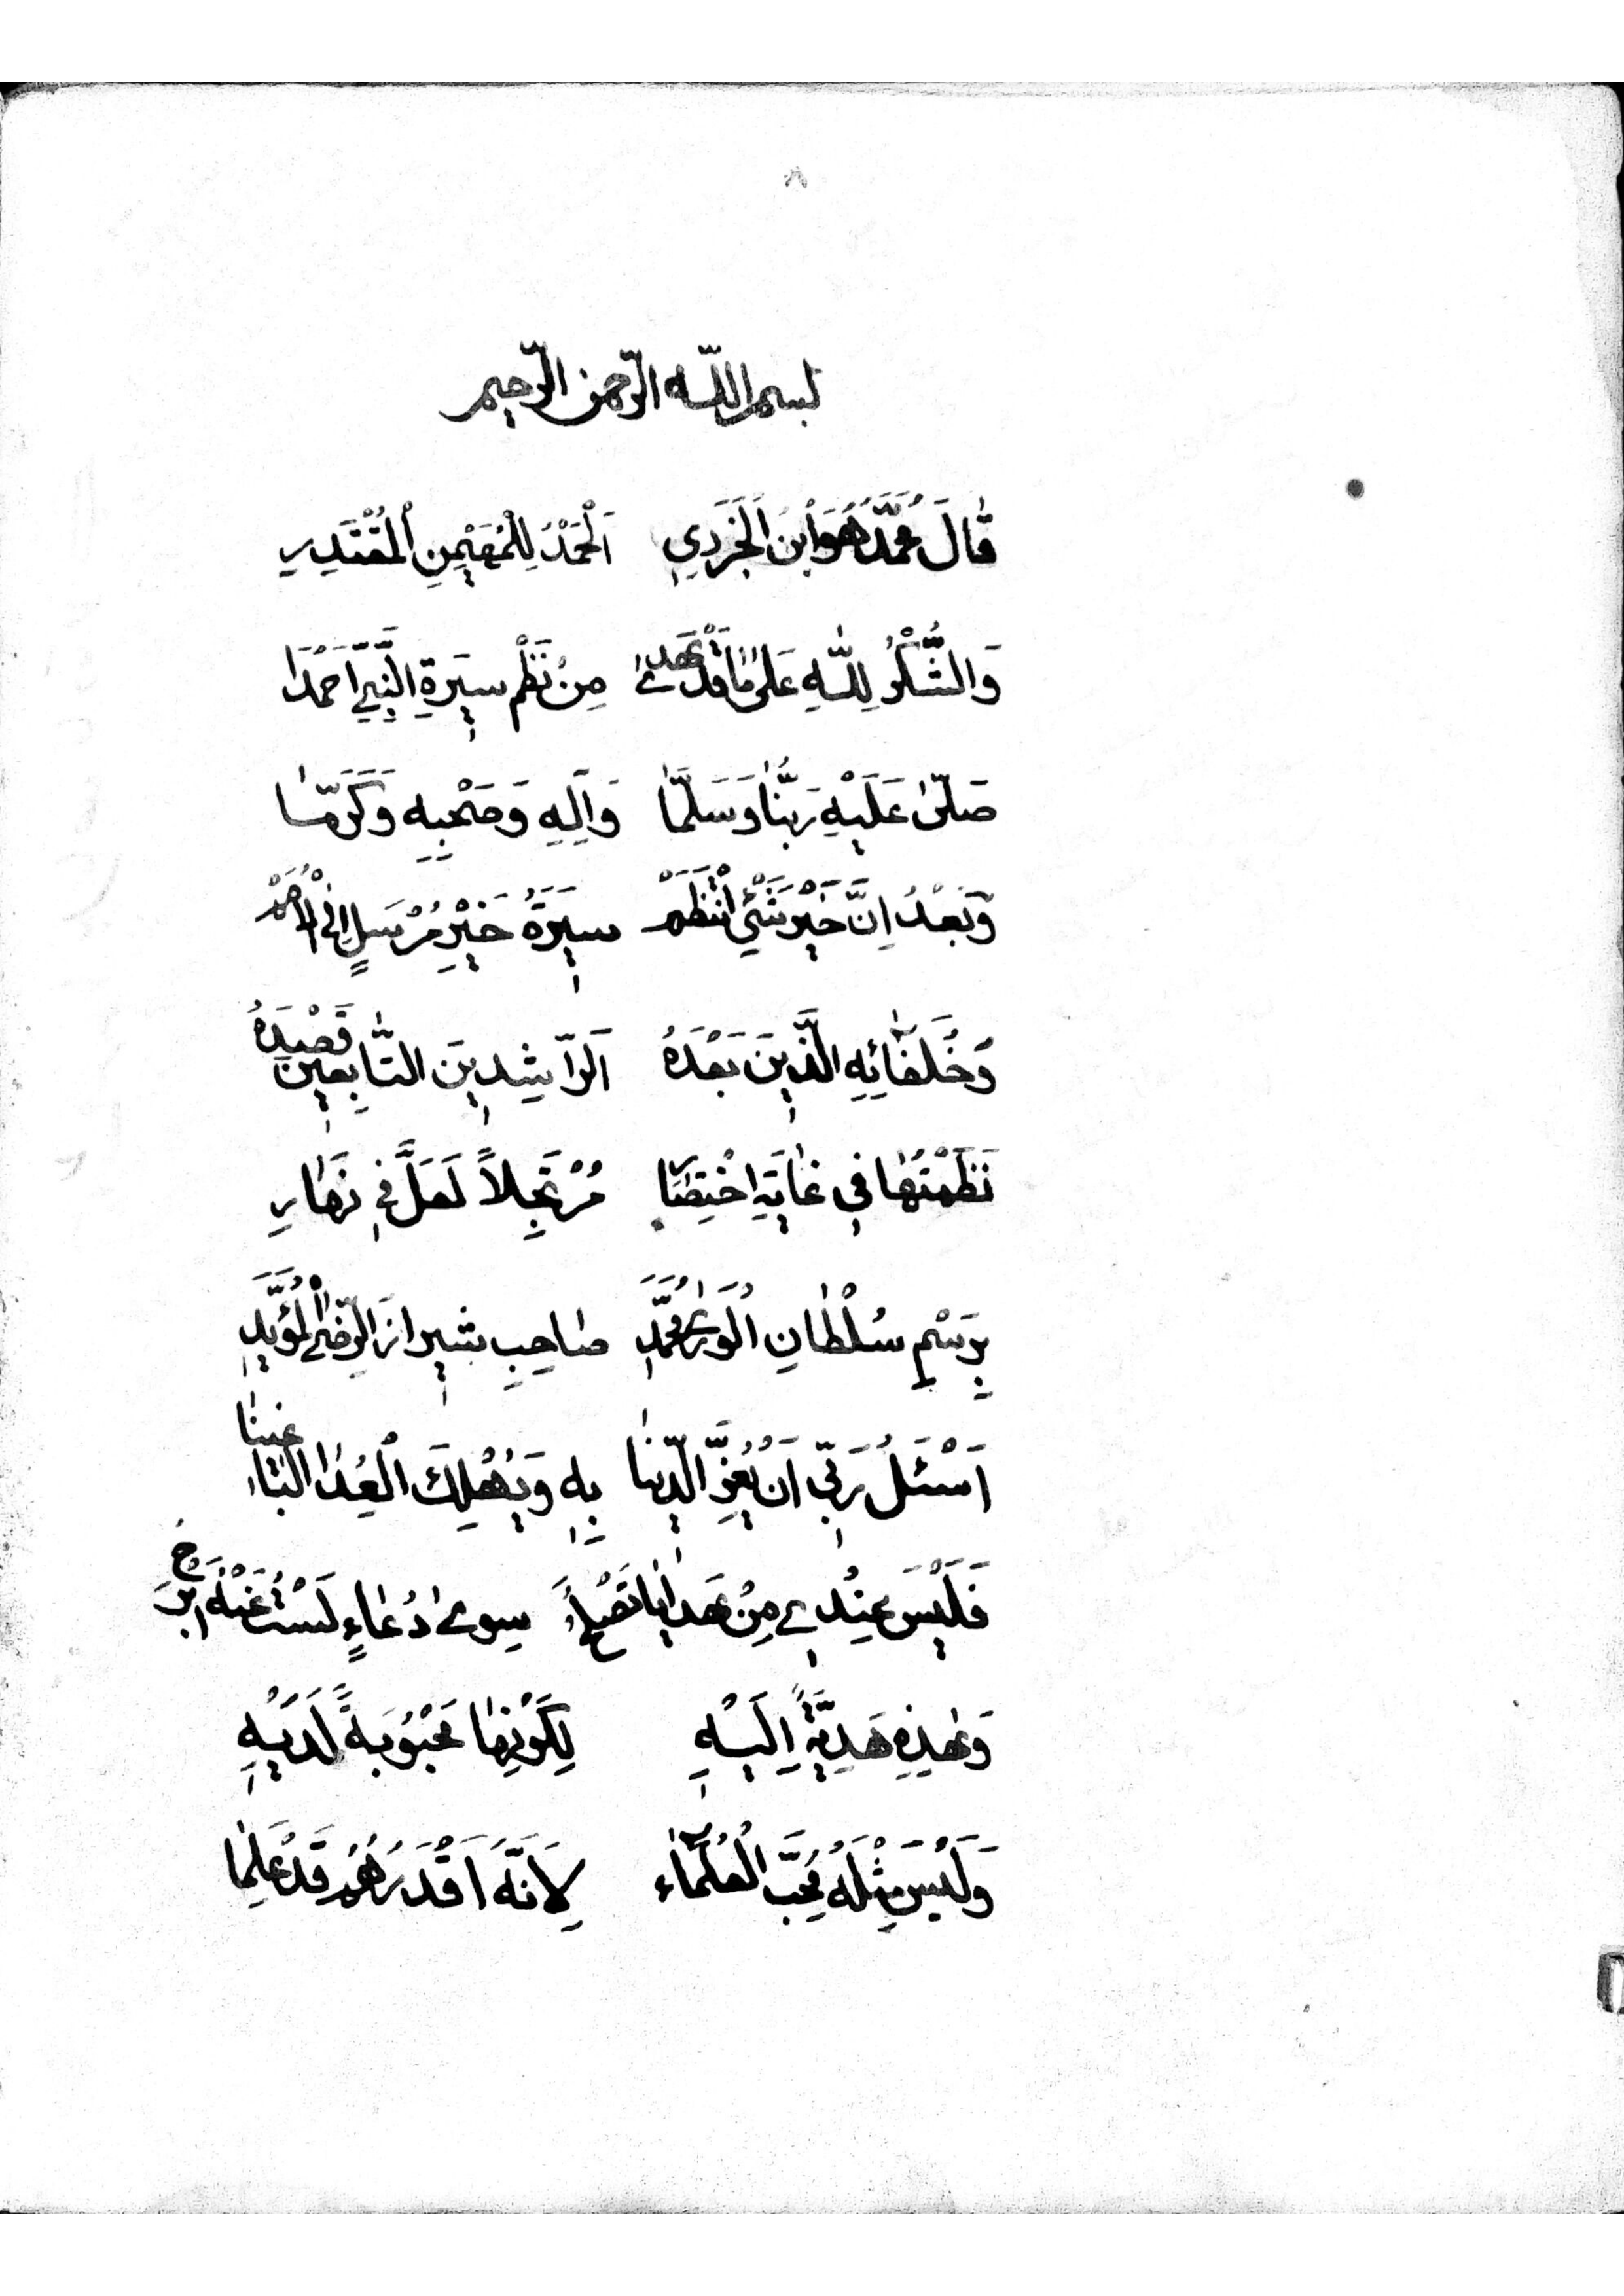 ٨
بسم اللّه الرّحمن الرّحيم
قَالَ مُحَمَّدُ هُوَ ابْنُ الْجَزَرِي اَلْحَمْدُ لِلْمُهَيْمِنِ الْمُقْتَدِرِ
وَالشُّكْرُ لِلّٰهِ عَلىٰ مَا قَدْ هَدىٰ مِنْ نَظْمِ سِيرَةِ النَّبِيِّ اَحْمَدَا
صَلّىٰ عَلَيْهِ رَبُّنَا وَسَلَّمَا وَآلِهِ وَصَحْبِهِ وَكَرَّمَا
وَبَعْدُ اِنَّ خَيْرَ شَيْئٍ انْتَظَمْ سِيرَةُ خَيْرِ مُرْسَلٍ اِلَى الْاُمَمْ
وَخُلَفَائِهِ الَّذِينَ بَعْدَهُ اَلرَّاشِدِينَ التَّابِعِينَ قَصْدَهُ
نَظَمْتُهَا فِي غَايَةِ اخْتِصَارِ مُرْتَجِلاً لَعَلَّ فِي نَهَارِ
بِرَسْمِ سُلْطَانِ الْوَرىٰ مُحَمَّدِ صَاحِبِ شِيرَازَ الرِّضَى الْمُؤَيَّدِ
اَسْئَلُ رَبِّي اَنْ يُعِزَّ الدِّينَا بِهِ وَيُهْلِكَ الْعِدَا الْبَاغِينَا
فَلَيْسَ عِنْدِي مِنْ هَدَايَا تَصْلُحُ سِوىٰ دُعَاءٍ لَسْتُ عَنْهُ اَبْرَحُ
وَهٰذِهِ هَدِيَّةٌ اِلَيْهِ لِكَوْنِهَا مَحْبُوبَةً لَدَيْهِ
وَلَيْسَ مِثْلَهُ يُحِبُّ الْعُلَمَاءَ لِاَنَّهُ اَقْدَرُهُمْ قَدْ عَلِمَا